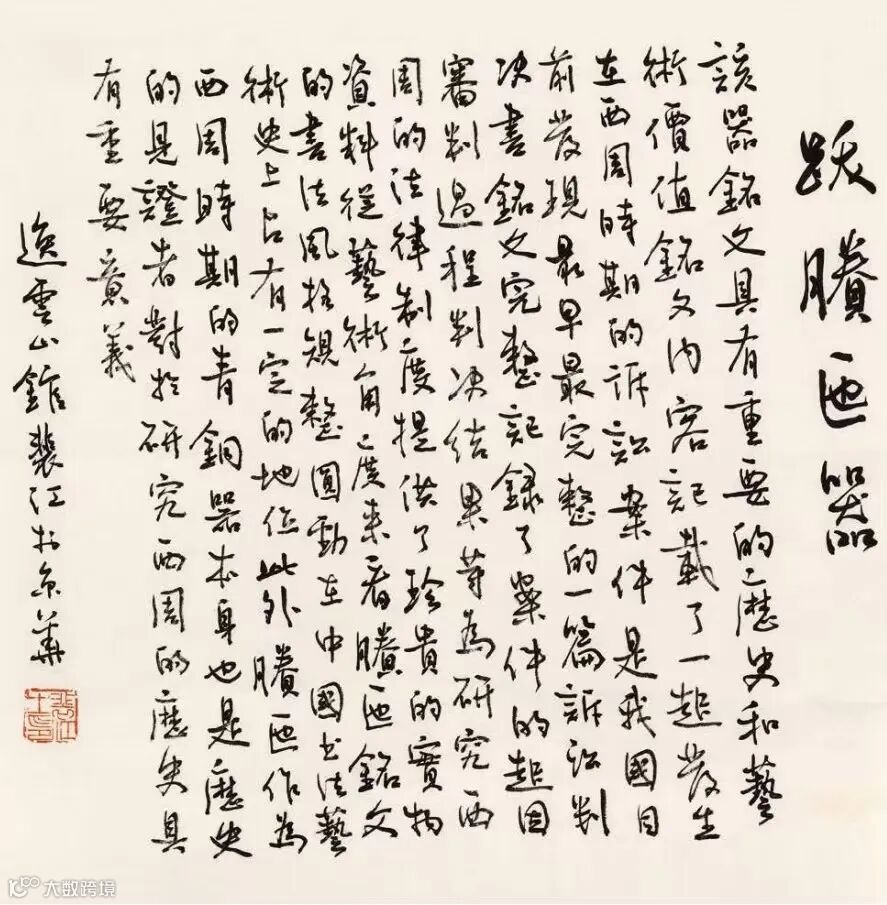 跋䞈匜器
該器銘文具有重要的歷史和藝
術價值銘文内容記載了一起發生
在西周時期的訴訟案件是我國目
前發現最早最完整的一篇訴訟判
决書銘文完整記錄了案件的起因
審判過程判决結果等為研究西
周的法律制度提供了珍貴的實物
資料從藝術角度來看䞈匜銘文
的書法風格規整圓勁在中國书法藝
術史上占有一定的地位此外䞈匜作為
西周時期的青銅器本身也是歷史
的見證者對於研究西周的歷史具
有重要意義
逸雲山館裴江於京華
大数跨境